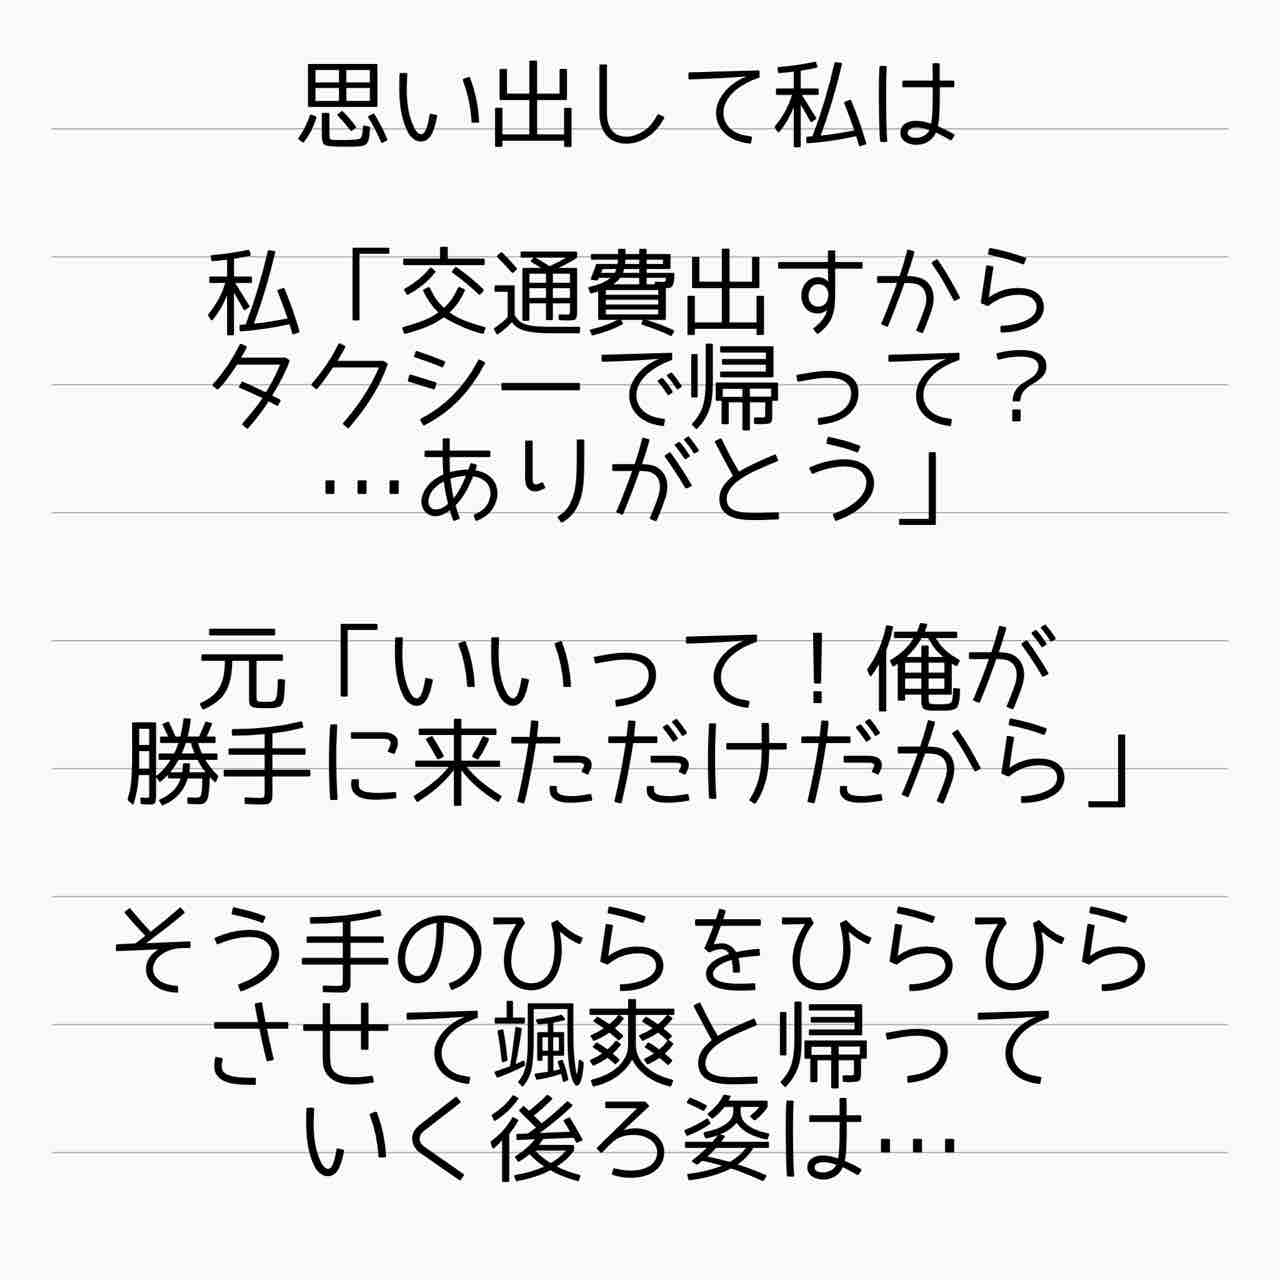 思い出して私は
私「交通費出すから
タクシーで帰って？
…ありがとう」
元「いいって！俺が
勝手に来ただけだから」
そう手のひらをひらひら
させて颯爽と帰って
いく後ろ姿は…